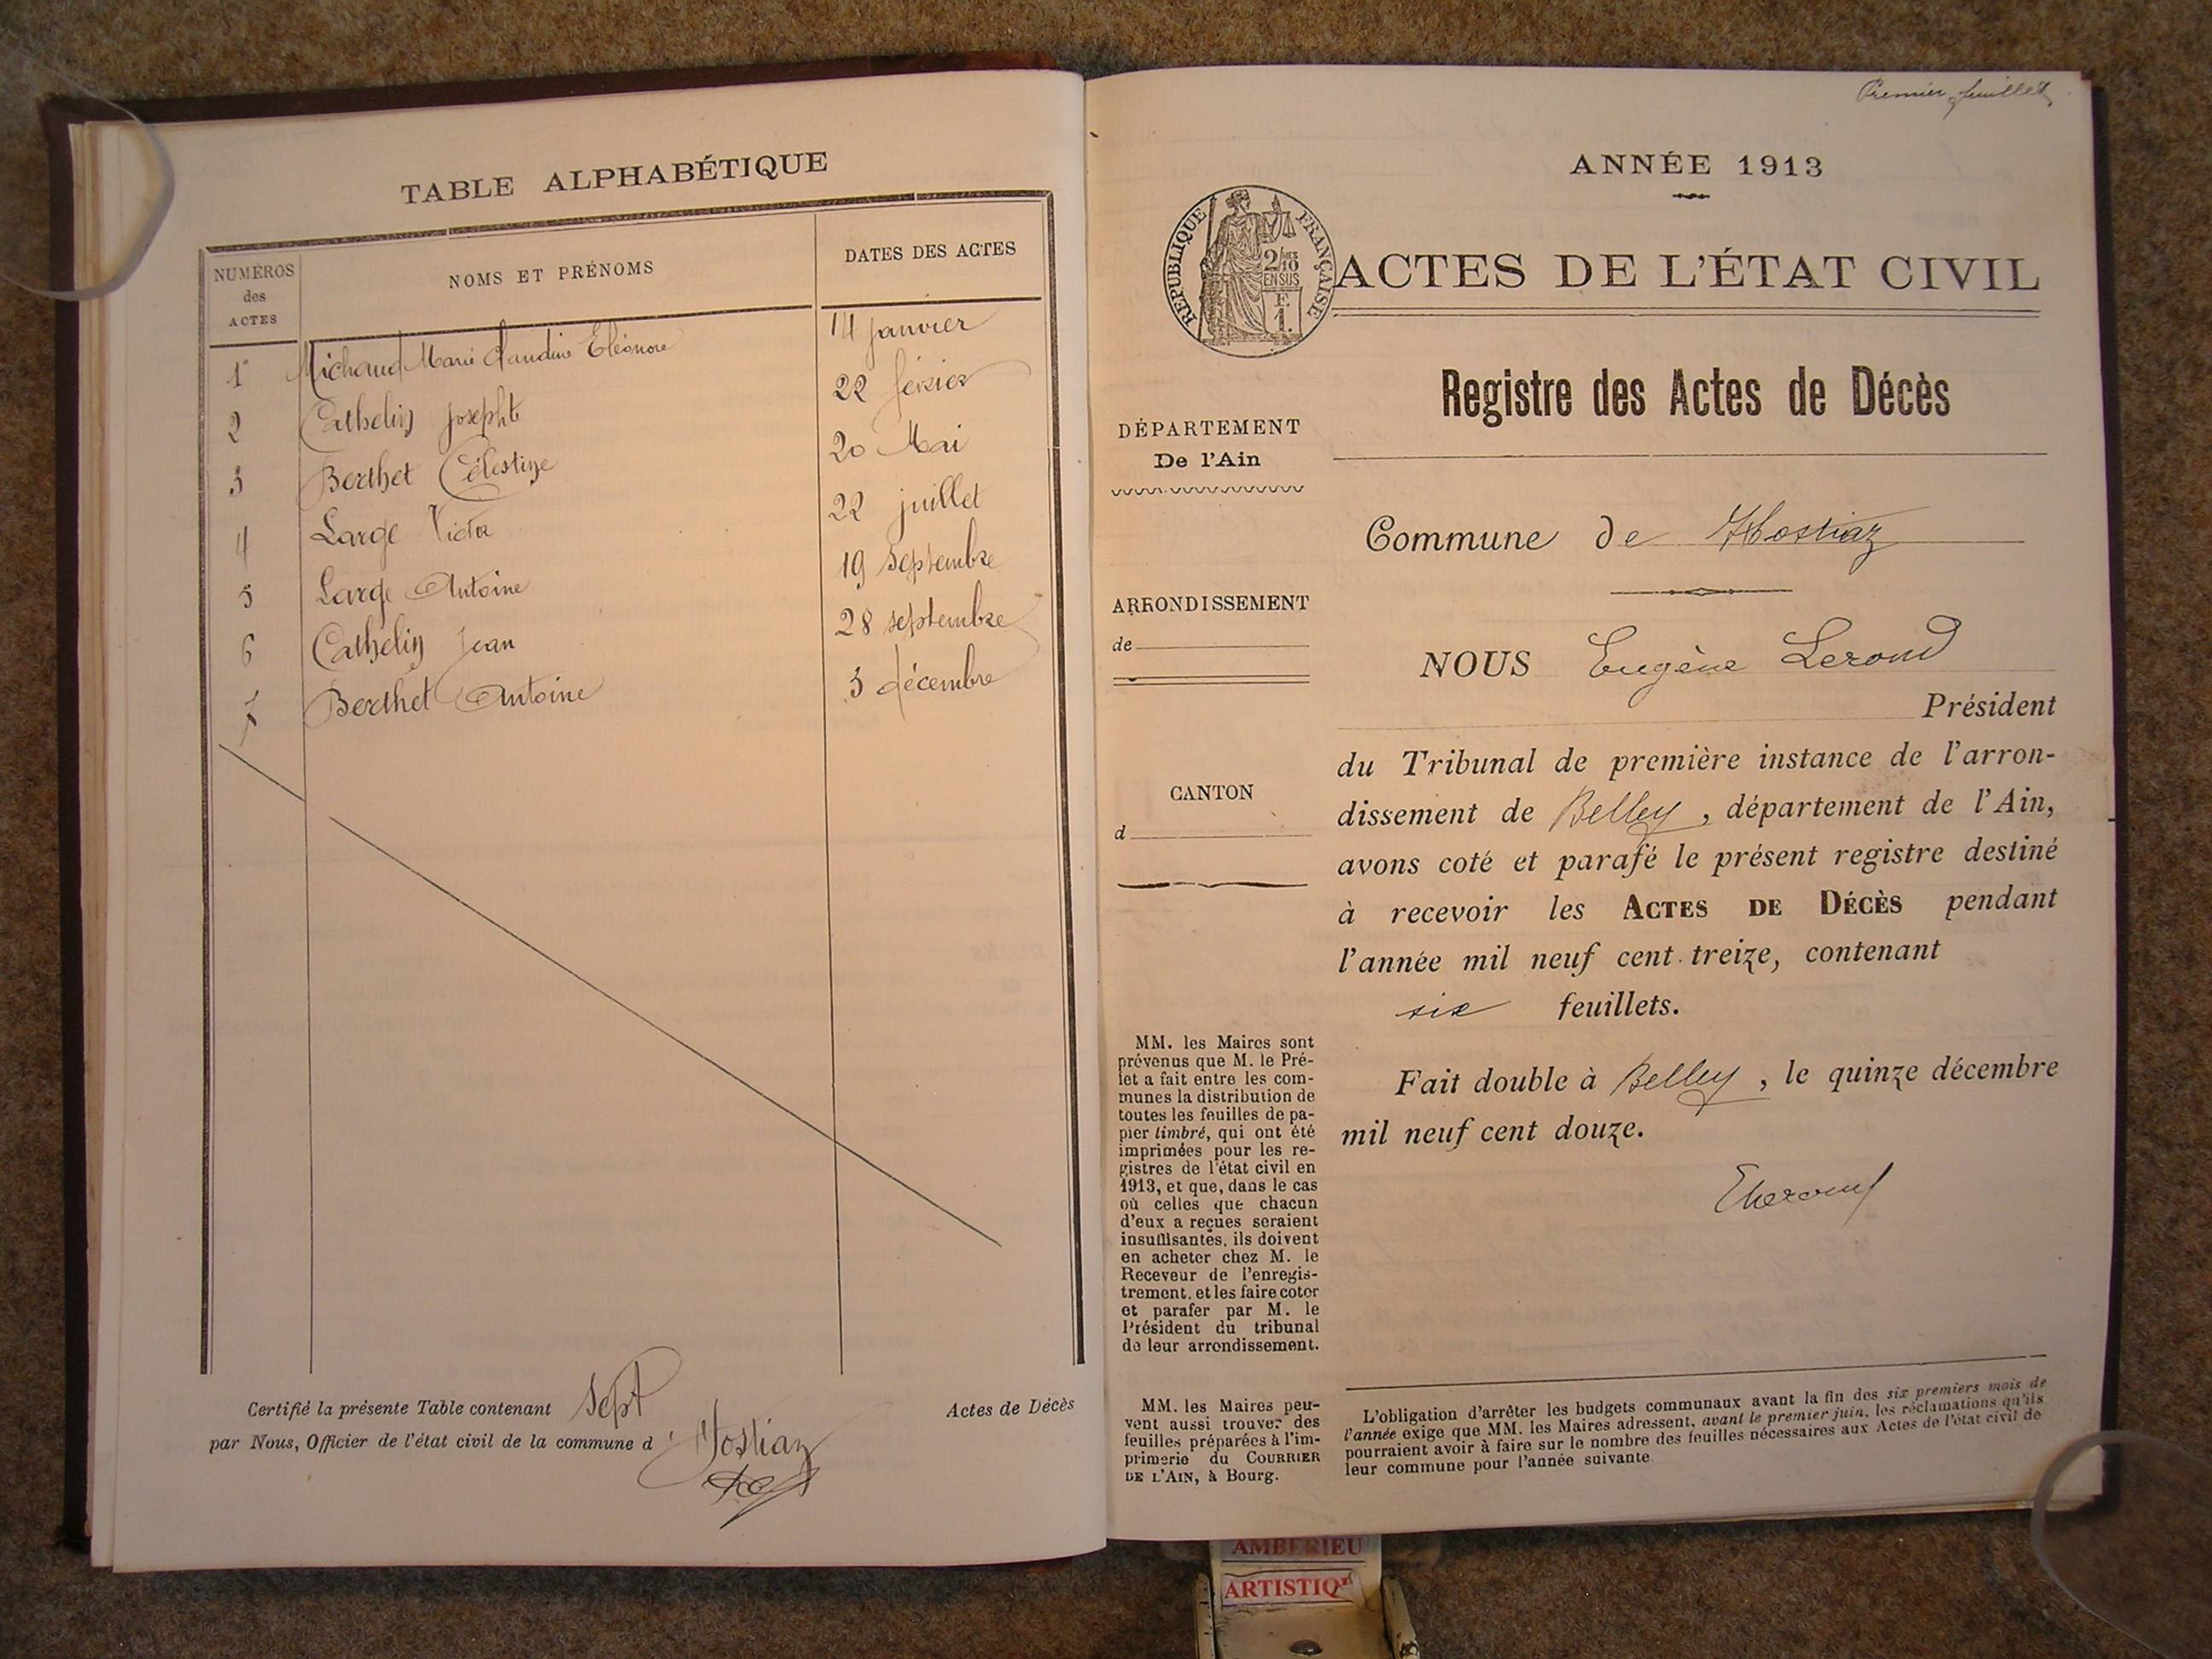 TABLE ALPHABÉTIQUE
NUMÉROS des ACTES
NOMS ET PRÉNOMS
DATES DES ACTES
1 Michaud Marie Claudine Eléonore 14 janvier
2 Cathelin Josephte 22 février
3 Berthet Célestine 20 Mai
4 Large Victor 22 juillet
5 Large Antoine 19 septembre
6 Cathelin Jean 28 septembre
7 Berthet Antoine 3 décembre
Certifié la présente Table contenant Sept Actes de Décès
par Nous, Officier de l'état civil de la commune d'Hostiaz
Premier feuillet
ANNÉE 1913
RÉPUBLIQUE FRANÇAISE
2/10
EN SUS
F.
1.
ACTES DE L'ÉTAT CIVIL
Registre des Actes de Décès
DÉPARTEMENT
De l'Ain
ARRONDISSEMENT
de
CANTON
d
MM. les Maires sont
prévenus que M. le Pré-
fet a fait entre les com-
munes la distribution de
toutes les feuilles de pa-
pier timbré, qui ont été
imprimées pour les re-
gistres de l'état civil en
1913, et que, dans le cas
où celles que chacun
d'eux a reçues seraient
insuffisantes, ils doivent
en acheter chez M. le
Receveur de l'enregis-
trement, et les faire coter
et parafer par M. le
Président du tribunal
de leur arrondissement.
MM. les Maires peu-
vent aussi trouver des
feuilles préparées à l'im-
primerie du COURRIER
DE L'AIN, à Bourg.
Commune de Hostiaz
NOUS Eugène Lerond
Président
du Tribunal de première instance de l'arron-
dissement de Belley, département de l'Ain,
avons coté et parafé le présent registre destiné
à recevoir les ACTES DE DÉCÈS pendant
l'année mil neuf cent treize, contenant
six feuillets.
Fait double à Belley, le quinze décembre
mil neuf cent douze.
L'obligation d'arrêter les budgets communaux avant la fin des six premiers mois de
l'année exige que MM. les Maires adressent, avant le premier juin, les réclamations qu'ils
pourraient avoir à faire sur le nombre des feuilles nécessaires aux Actes de l'état civil de
leur commune pour l'année suivante.
AMBERIEU
ARTISTIQ